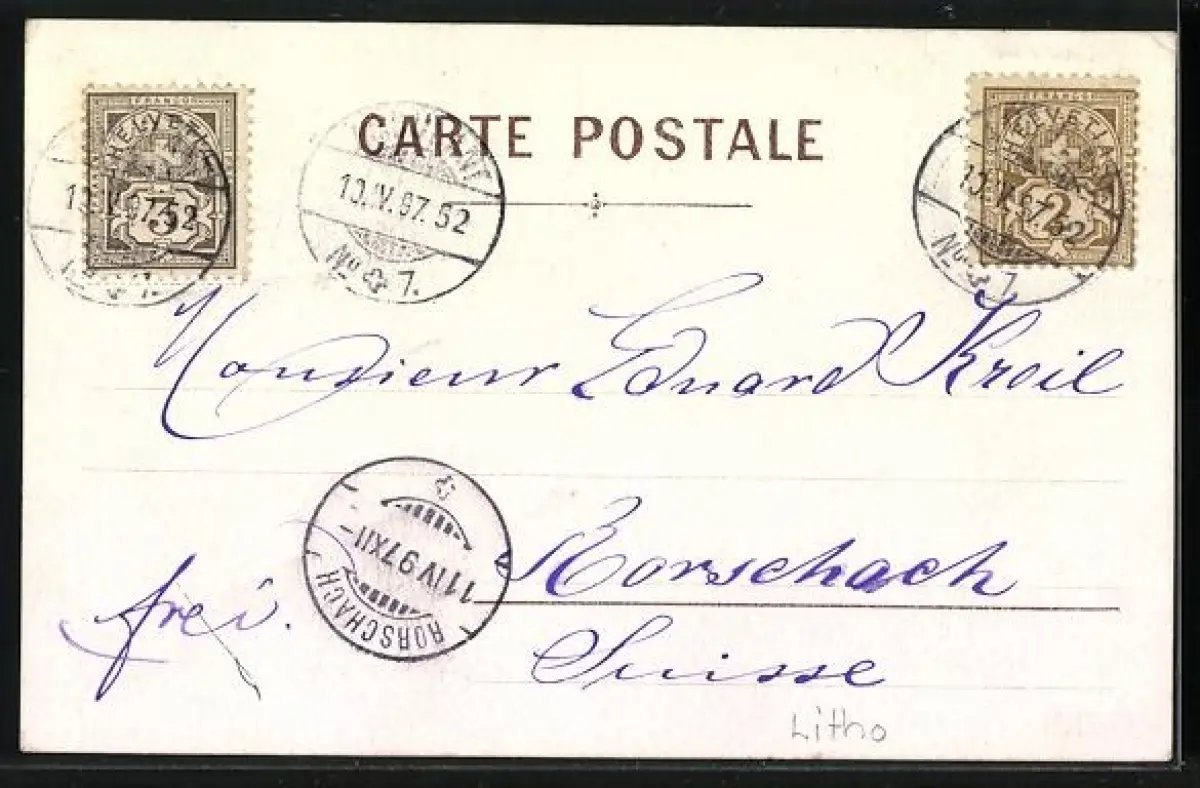 CARTE POSTALE
FRANCO
HELVETIA
FRANCO
HELVETIA
2
10.IV.97.
No 7.
Monsieur Eduard Kroil
RORSCHACH
11 IV 97 XII-
Rorschach
frei.
Suisse
Litho